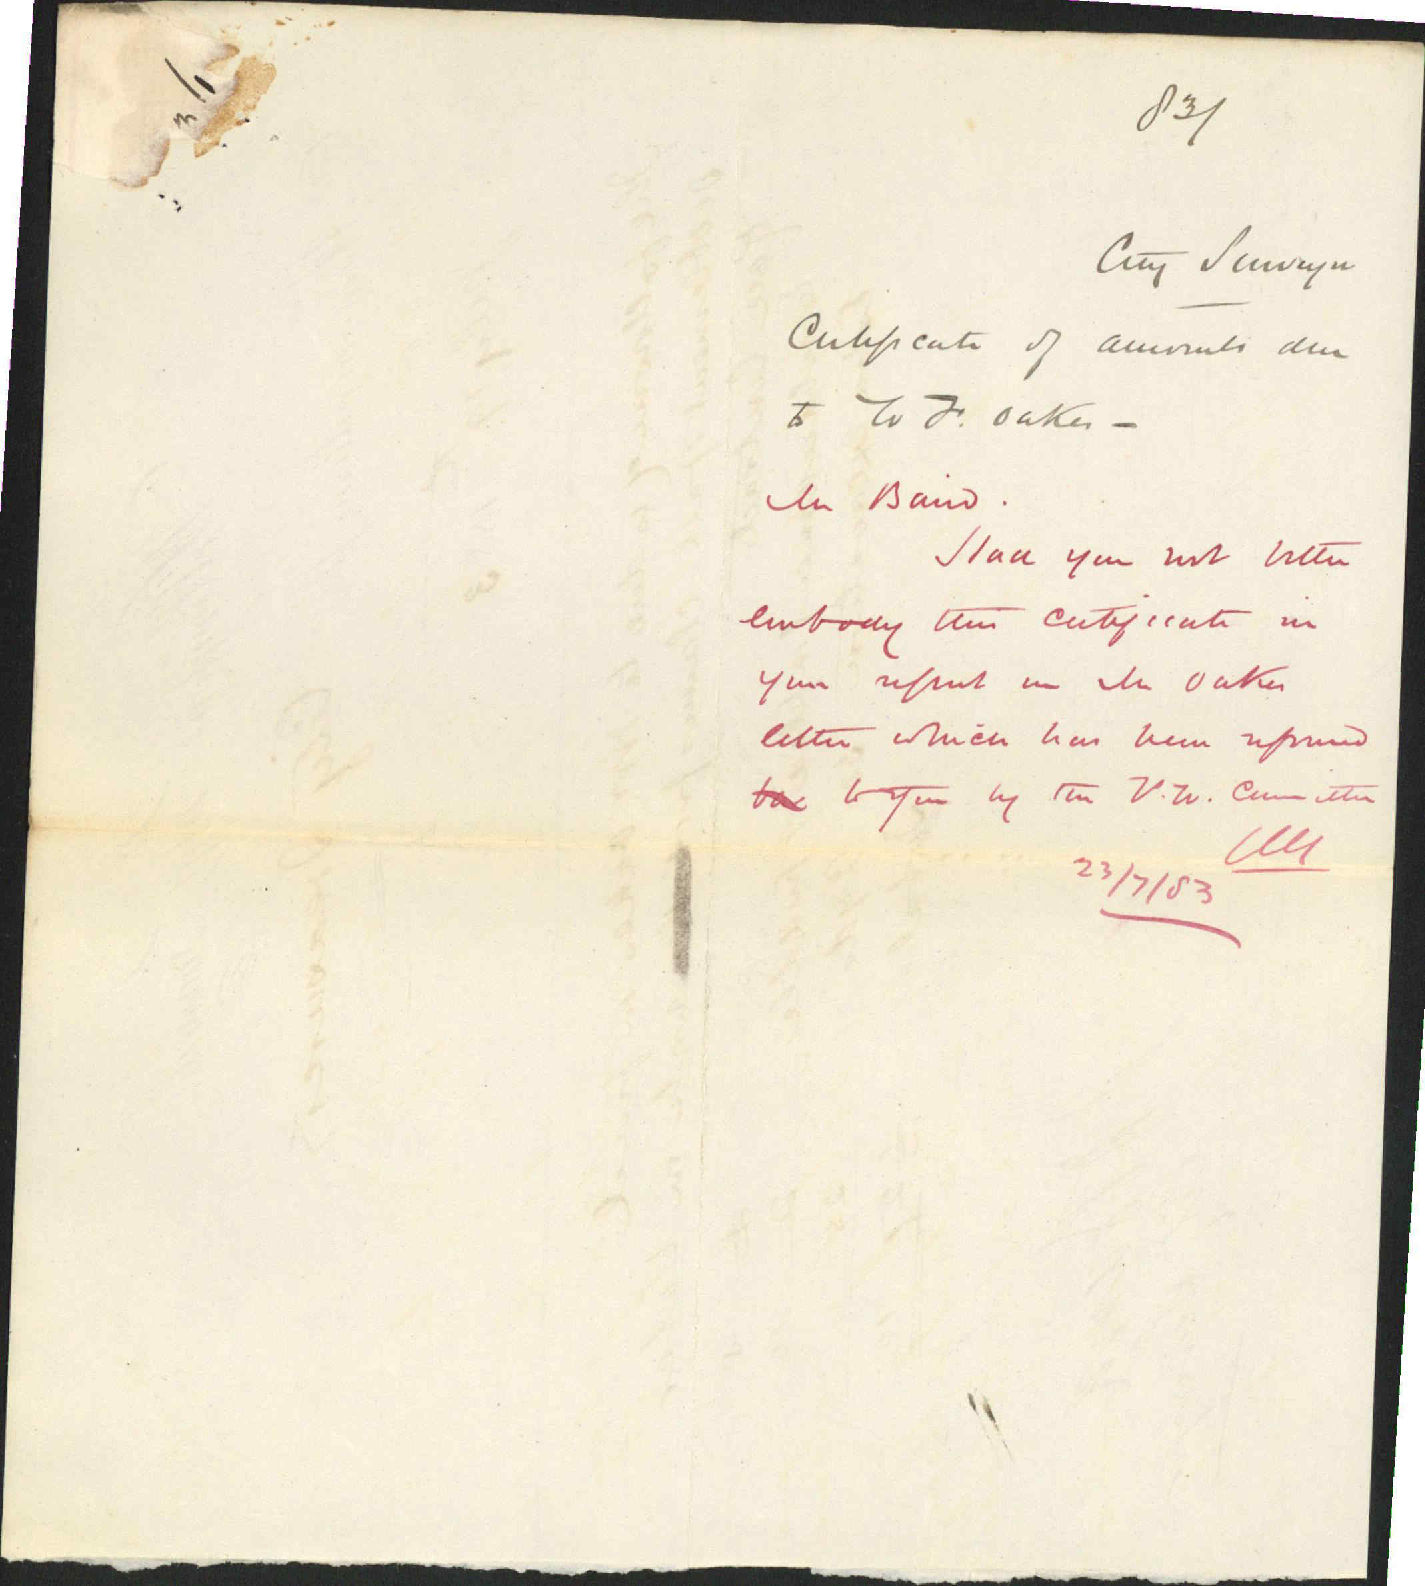 83/
City Surveyor
Certificate of amounts due
to W F. Oakes -
Mr Baird.
Had you not better
embody this certificate in
your report on Mr Oakes
letter which has been referred
to you by the P.W. Committee
23/7/83